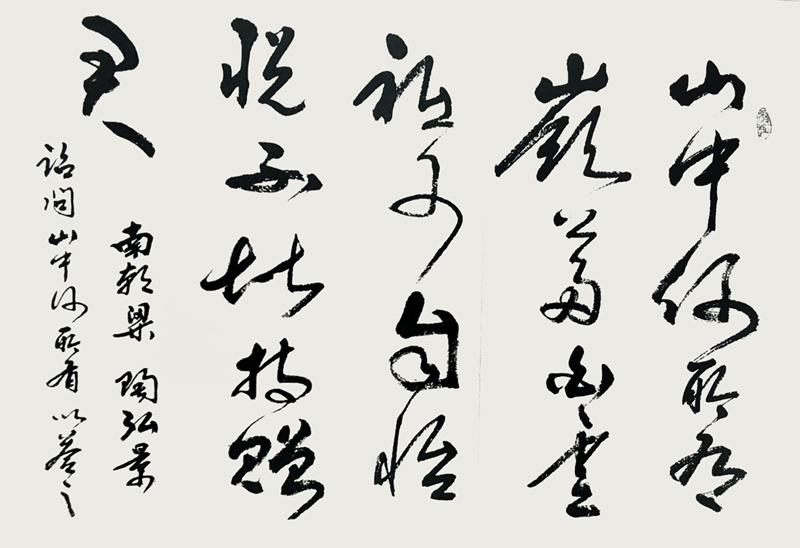 山中何所有
嶺上多白雲
祗可自怡
悦不堪持贈
君
南朝梁 陶弘景
詔問山中何所有以答之